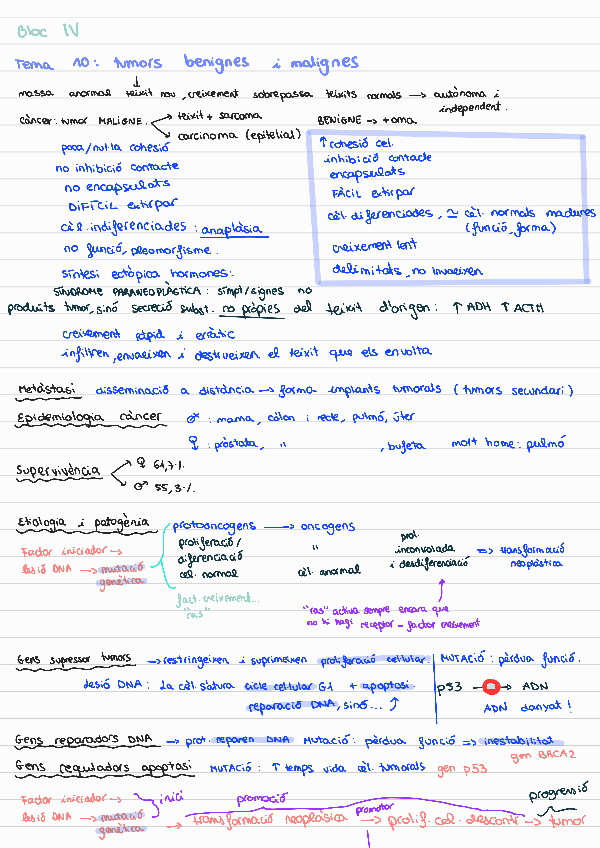 Bloc IV
Tema 10: tumors benignes i malignes
massa anormal teixit nou, creixement sobrepassa teixits normals → autònoma i
independent.
càncer: tumor MALIGNE. → teixit + sarcoma
→ carcinoma (epitelial)
BENIGNE → + oma.
poca/nul·la cohesió
no inhibició contacte
no encapsulats
DIFÍCIL extirpar
cèl. indiferenciades: anaplàsia
no funció, pleomorfisme.
síntesi ectòpica hormones:
↑ cohesió cel.
inhibició contacte
encapsulats
FÀCIL extirpar
cèl. diferenciades, ≃ cèl. normals madures
(funció, forma)
creixement lent
delimitats, no invaeixen
SÍNDROME PARANEOPLÀSTICA: símpt/signes no
produïts tumor, sinó secreció subst. no pròpies del teixit d'origen: ↑ ADH ↑ ACTH
creixement ràpid i erràtic
infiltren, envaeixen i destrueixen el teixit que els envolta
Metàstasi disseminació a distància → forma implants tumorals (tumors secundari)
Epidemiologia càncer ♂: mama, còlon i recte, pulmó, úter
♀: pròstata, " , bufeta mort home: pulmó
Supervivència → ♀ 61,7%.
→ ♂ 55,3%.
Etiologia i patogènia
Factor iniciador →
lesió DNA → mutació
genètica
protooncogens → oncogens
proliferació/
diferenciació
cel. normal
"
cèl. anormal
prol.
incontrolada
i desdiferenciació
⇒ transformació
neoplàstica
fact. creixement...
"ras"
"ras" activa sempre encara que
no hi hagi receptor - factor creixement
Gens supressor tumors → restringeixen i suprimeixen proliferació cel·lular.
lesió DNA: la cèl. s'atura cicle cel·lular G1 + apoptosi
reparació DNA, sinó... ↑
MUTACIÓ: pèrdua funció.
p53 → ADN
ADN danyat!
Gens reparadors DNA → prot. reparen DNA MUTACIÓ: pèrdua funció ⇒ inestabilitat
gen BRCA2
Gens reguladors apoptosi MUTACIÓ: ↑ temps vida cèl. tumorals gen p53
Factor iniciador →
lesió DNA → mutació
genètica
inici
promoció
promotor
progressió
→ transformació neoplàsica → prolif. cel. descontr → tumor